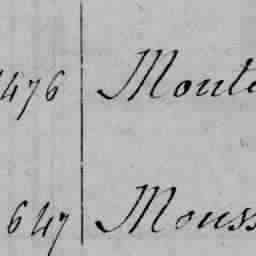 1476 Monte
647 Mouss